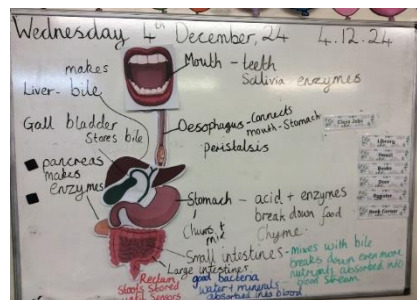 Wednesday 4th December, 24 4.12.24
makes
Liver - bile
Gall bladder
Stores bile
pancreas
makes
enzymes
Mouth - teeth
Salivia - enzymes
Oesophagus - Connects
mouth - Stomach
peristalsis
Stomach - acid + enzymes
break down food
Chyme.
Churns +
mix
Small intestines - mixes with bile
breaks down even more
nutrients absorbed into
blood stream
Large intestines
good bacteria
water + minerals
absorbed into blood
Rectum
Stools Stored
until
Class Jobs
Library
Pencil
Books
Door
Register
Book Corner